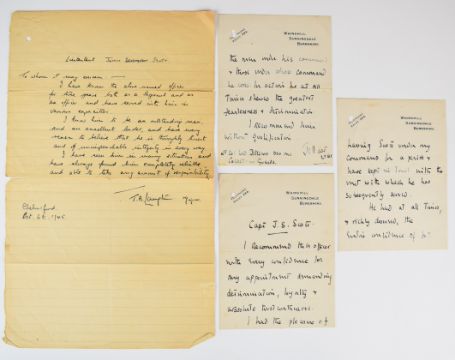 Lieutenant James Scott.
To whom it may concern —
I have known the above named officer
for three years both as a serjeant and as
an officer and have served with him in
various capacities.
I know him to be an outstanding man,
and an excellent leader, and have every
reason to believe that he is thoroughly honest
and of unimpeachable integrity in every way.
I have seen him in many situations and
have always found him completely reliable
and able to take any amount of responsibility.
Major
Chelmsford
Oct. 1945
SUNNINGDALE
BERKSHIRE
Capt J. S. Scott
I recommend this officer
with every confidence for
any appointment demanding
determination, loyalty &
absolute trustworthiness.
I had the pleasure of
SUNNINGDALE
BERKSHIRE
having Scott under my
command for a period &
have kept in touch with the
unit with which he has
subsequently served.
He had at all times,
& richly deserved, the
entire confidence of
SUNNINGDALE
BERKSHIRE
the men under his command
& those under whose command
he was in action he at all
times showed the greatest
& determination
I recommend him
without qualification